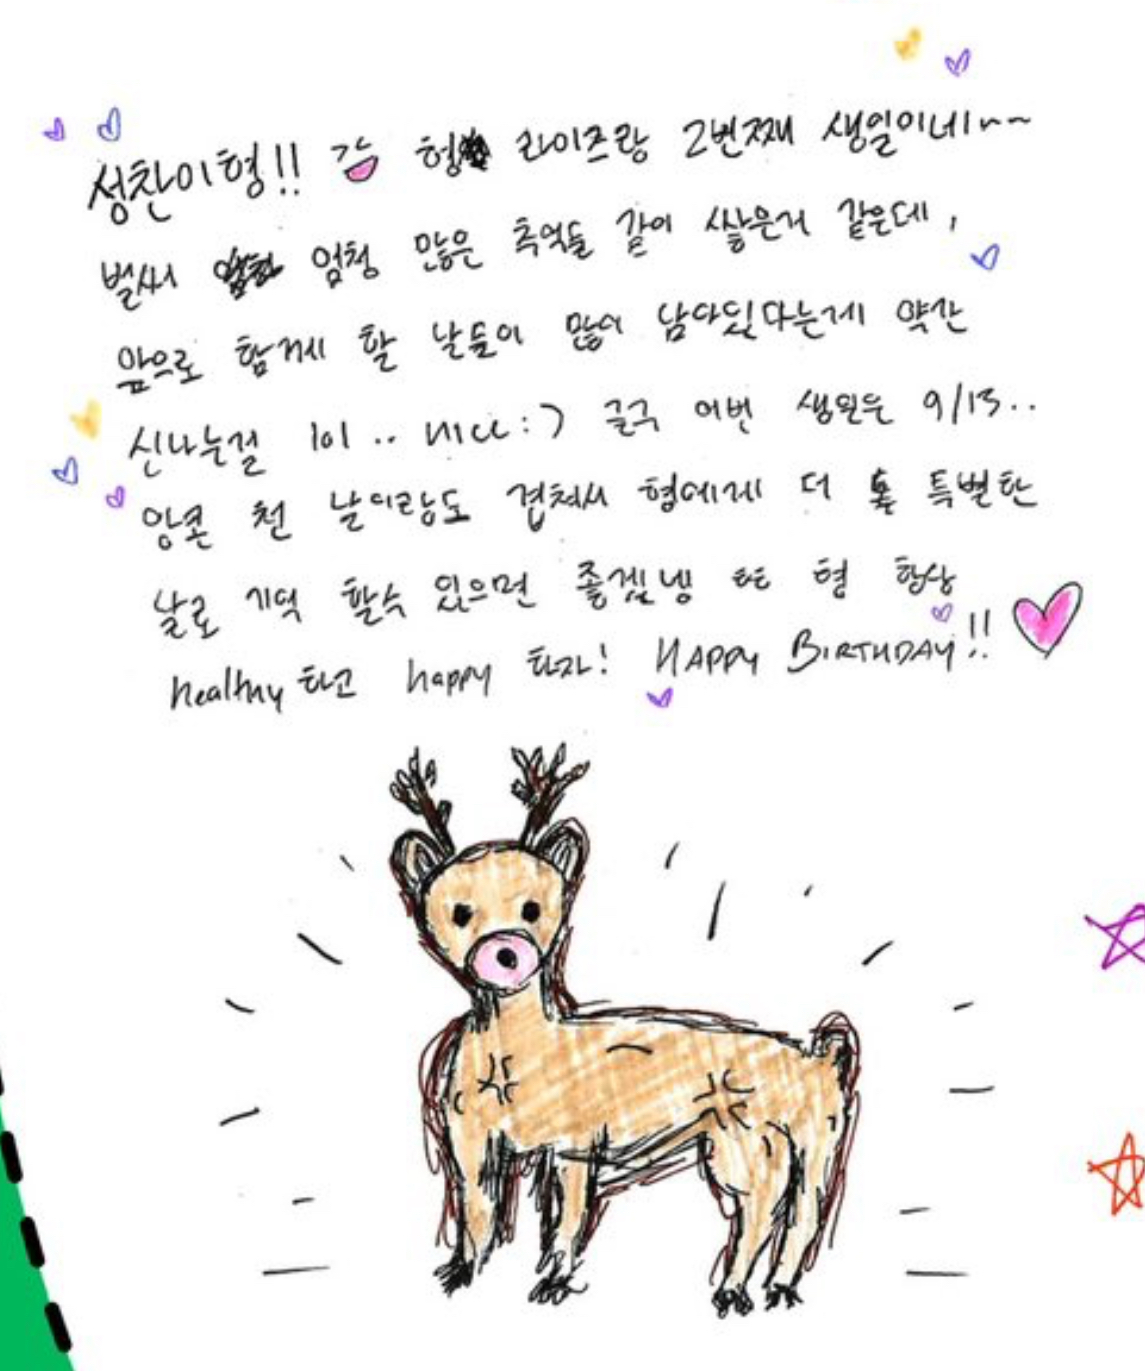 성찬이형!! 형 라이즈랑 2번째 생일이네~~
벌써 엄청 많은 추억들 같이 쌓은거 같은데,
앞으로 함께 할 날들이 많이 남아있다는게 약간
신나는걸 lol .. nice :) 글구 이번 생일은 9/13..
앙콘 첫 날이랑도 겹쳐서 형에게 더 특별한
날로 기억 할수 있으면 좋겠넹 ㅌㅌ 형 항상
healthy 하고 happy 하자! HAPPY BIRTHDAY!!